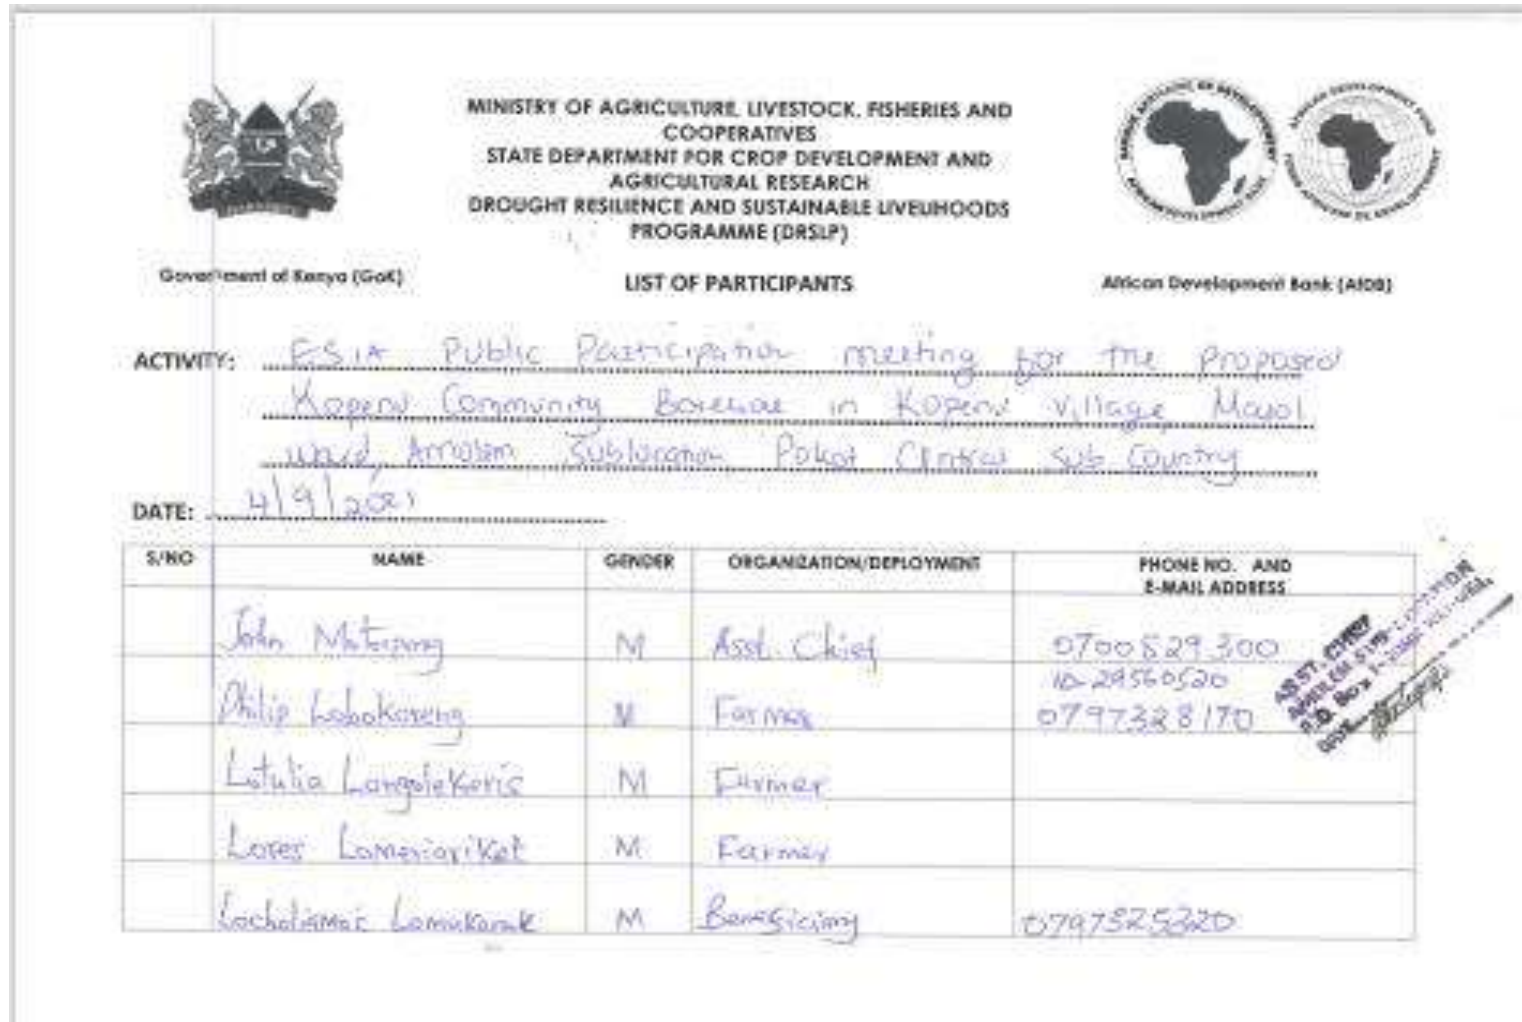 MINISTRY OF AGRICULTURE, LIVESTOCK, FISHERIES AND
COOPERATIVES
STATE DEPARTMENT FOR CROP DEVELOPMENT AND
AGRICULTURAL RESEARCH
DROUGHT RESILIENCE AND SUSTAINABLE LIVELIHOODS
PROGRAMME (DRSLP)
Government of Kenya (GoK)
LIST OF PARTICIPANTS
African Development Bank (AfDB)
ACTIVITY: ESIA Public Participation meeting for the proposed
Community in village, Masol
ward, Sublocation Pokot Central Sub County
DATE: 4/9/2021
S/NO NAME GENDER ORGANIZATION/DEPLOYMENT PHONE NO. AND
E-MAIL ADDRESS
John M Asst. Chief 0700529300
ID 29560520
Philip M Farmer 0797328170
Lotulia M Farmer
M Farmer
M Beneficiary 0797525320
ASST. CHIEF
P.O. Box